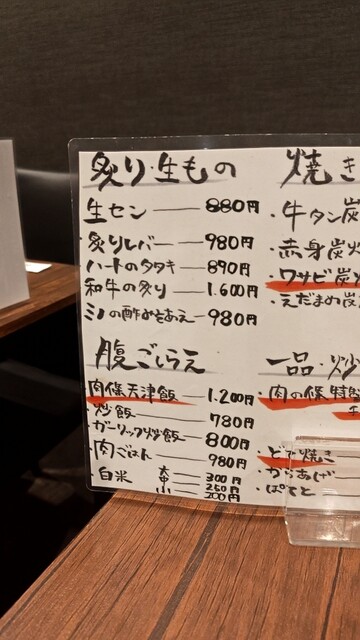 炙り・生もの
生セン 880円
炙りレバー 980円
ハートのタタキ 890円
和牛の炙り 1.600円
ミノの酢みそあえ 980円
腹ごしらえ
肉條天津飯 1.200円
炒飯 780円
ガーリック炒飯 800円
肉ごはん 980円
白米 大 300円
中 250円
小 200円
焼き
・牛タン炭
・赤身炭火
・ワサビ炭火
・えだまめ炭
一品・炒
・肉の條特製
・どて焼き
・からあげ
・ぽてと